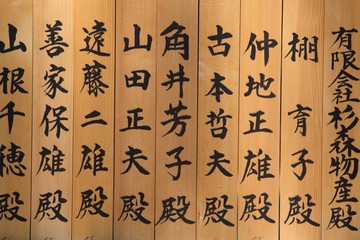 有限会社杉森物産殿
棚育子殿
仲地正雄殿
古本哲夫殿
角井芳子殿
山田正夫殿
遠藤二雄殿
善家保雄殿
山根千穂殿